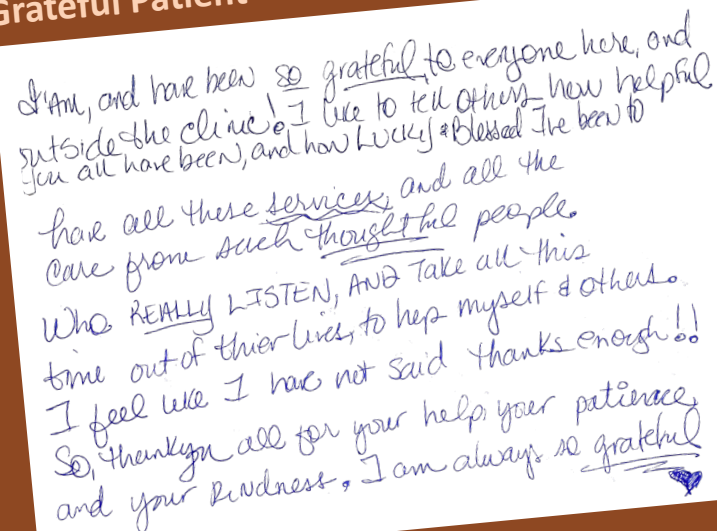 Grateful Patient
I Am, and have been so grateful to everyone here, and
outside the clinic! I like to tell others how helpful
you all have been, and how Lucky & Blessed I've been to
have all these services, and all the
care from such thoughtful people.
Who REALLY LISTEN, AND Take all this
time out of thier lives, to help myself & others.
I feel like I have not said thanks enough!!
So, thankyou all for your help, your patience,
and your kindness. I am always so grateful